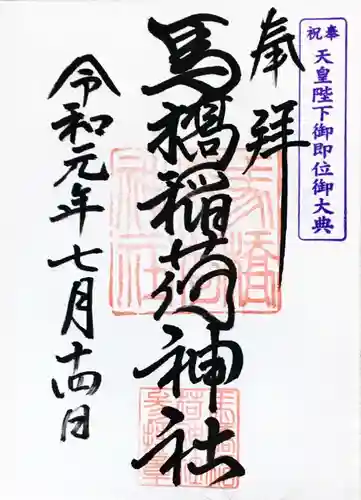 奉祝
天皇陛下御即位御大典
奉拝
馬橋稲荷神社
令和元年七月十四日